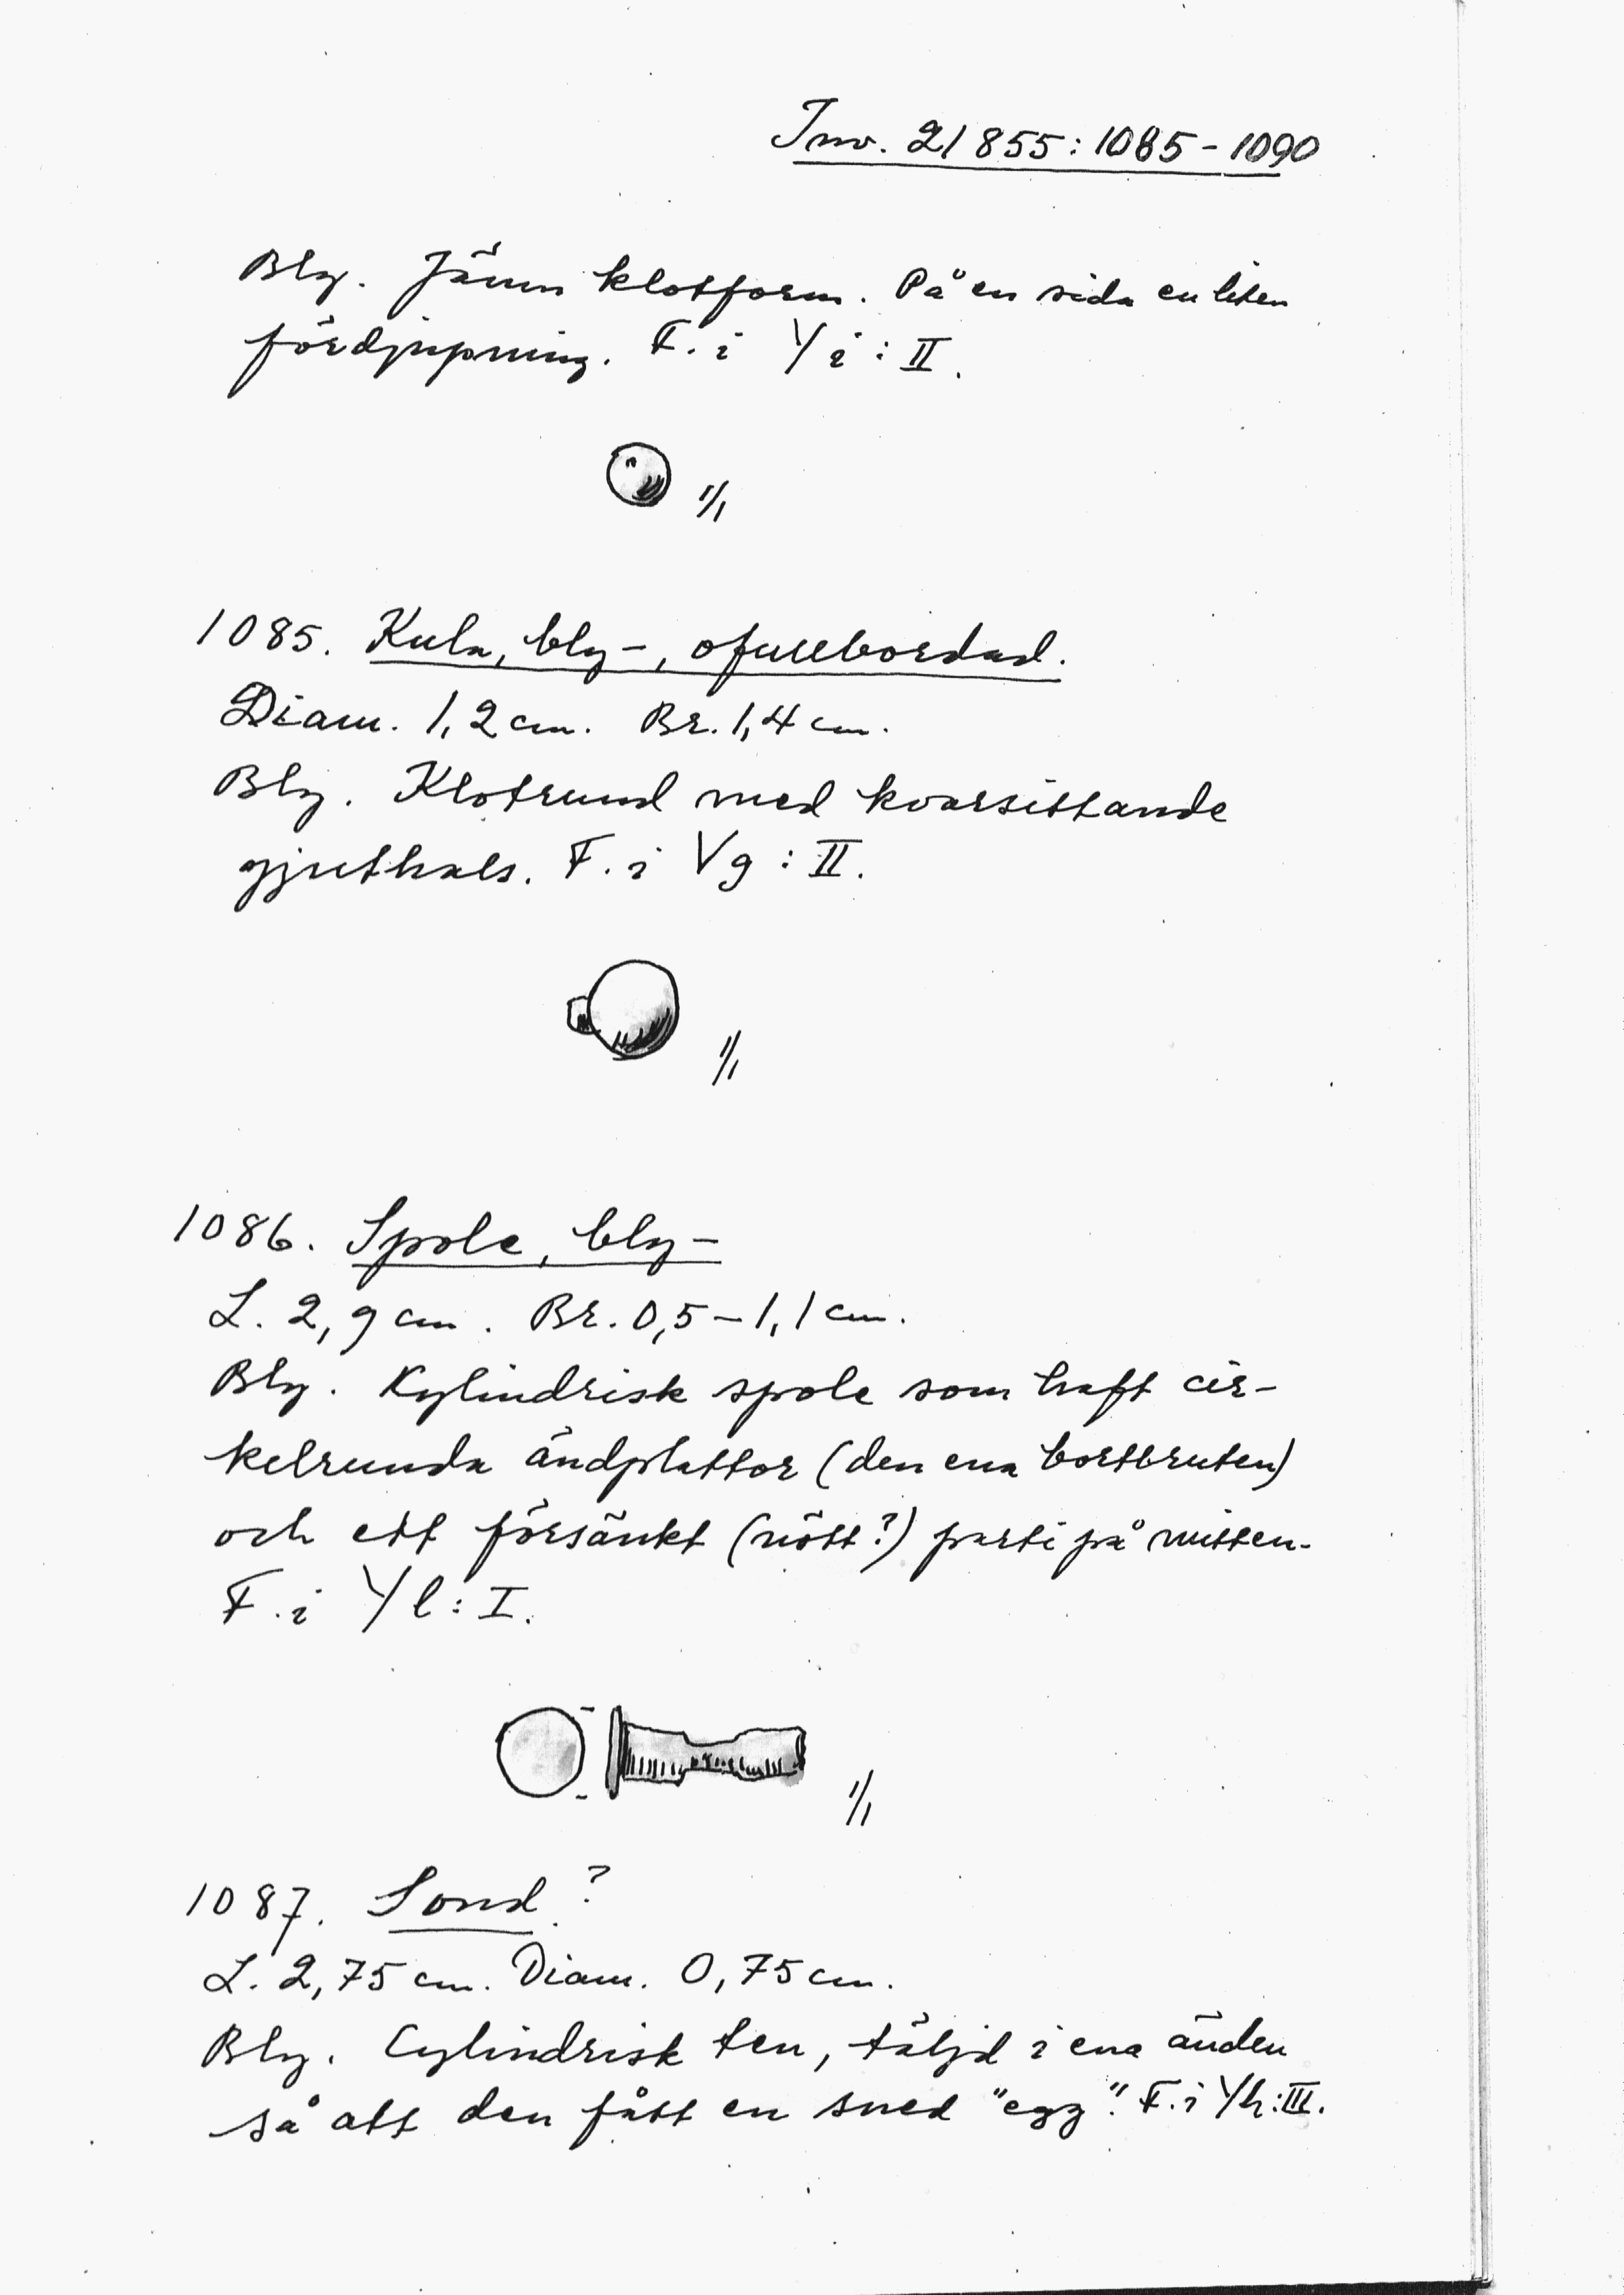 Inv. 21855:1085-1090
Bly. Jämn klotform. På en sida en liten
fördjupning. F. i Yi:II.
1/1
1085. Kula, bly-, ofullbordad.
Diam. 1,2 cm. Br. 1,4 cm.
Bly. Klotrund med kvarsittande
gjuthals. F. i Vg:II.
1/1
1086. Spole, bly-
L. 2,9 cm. Br. 0,5-1,1 cm.
Bly. Kylindrisk spole som haft cir-
kelrunda ändplattor (den ena bortbruten)
och ett försänkt (nött?) parti på mitten.
F. i Yl:I.
1/1
1087. Sond?
L. 2,75 cm. Diam. 0,75 cm.
Bly. Cylindrisk ten, täljd i ena änden
så att den fått en sned "egg". F. i Yh:III.